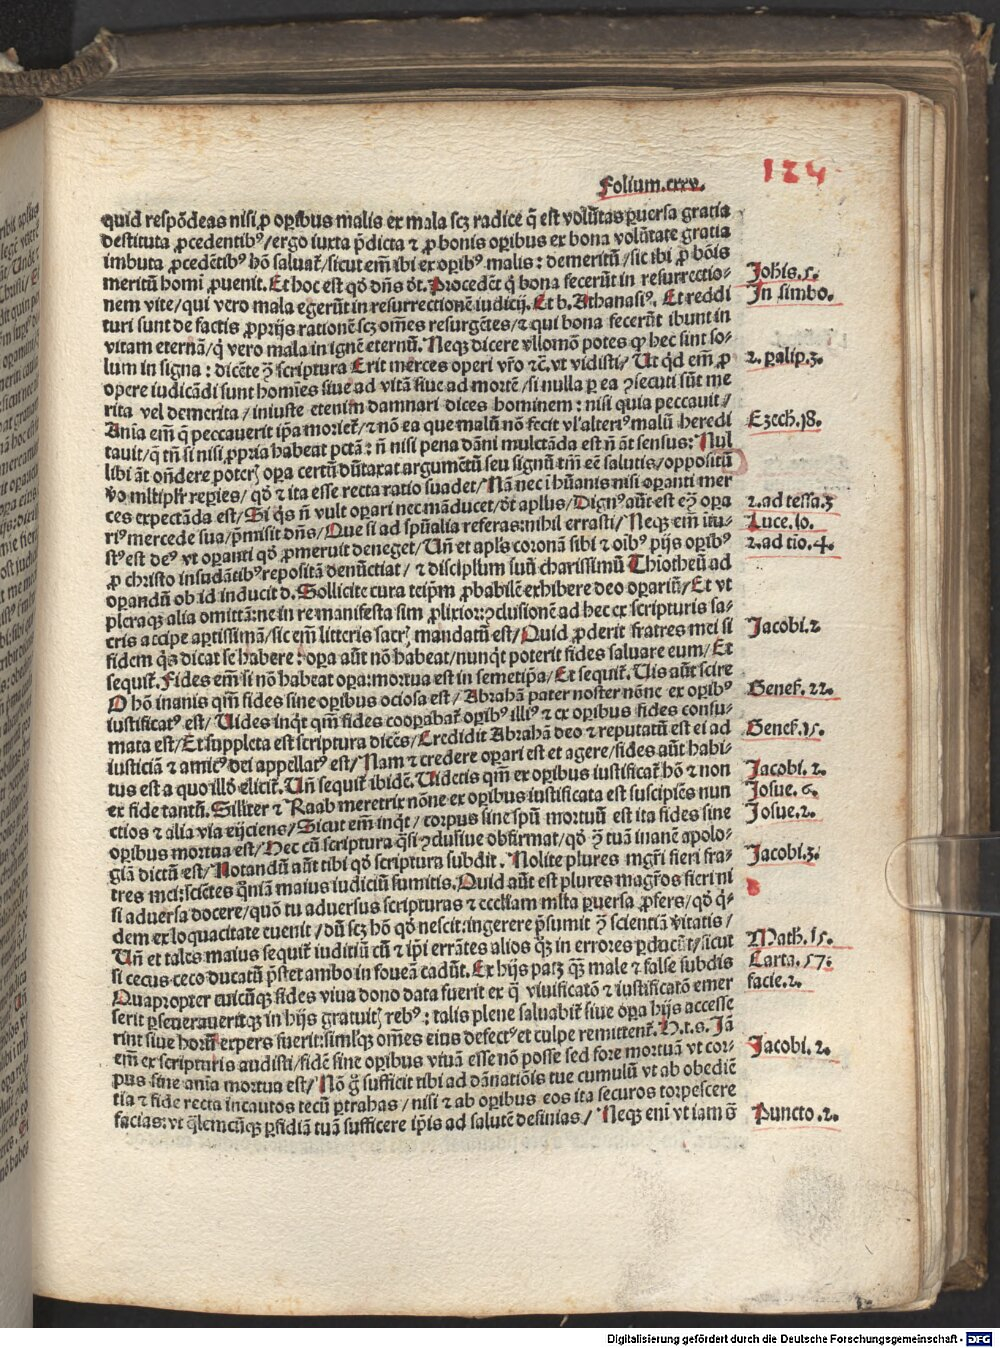 124
Folium.cxxv.
quid respõdeas nisi ꝓ oꝑibus malis ex mala scꝫ radice q̃ est volũtas ꝑuersa gratia
destituta ꝓcedentibꝰ/ergo iuxta p̃dicta ⁊ ꝓ bonis oꝑibus ex bona volũtate gratia
imbuta ꝓcedẽtibꝰ hõ saluat᷑/sicut em̃ ibi ex oꝑibꝰ malis: demeritũ/sic ibi ꝓ bõis
meritũ homĩ ꝓuenit. Et hoc est qđ dñs õt. Procedẽt q̃ bona fecerũt in resurrectio-
nem vite/qui vero mala egerũt in resurrectionẽ iudicij. Et b. Athanasiꝰ. Et reddi
turi sunt de factis ꝓprijs rationẽ scꝫ om̃es resurgẽtes/⁊ qui bona fecerũt ibunt in
vitam eternã/q̃ vero mala in ignẽ eternũ. Neqꝫ dicere vllomõ potes ꝙ hec sint so-
lum in signa: dicẽte ꝯ̃ scriptura Erit merces operi vr̃o ⁊c̃. vt vidisti/ Ut qđ em̃ ꝓ
opere iudicãdi sunt homĩes siue ad vitã siue ad mortẽ/si nulla ꝑ ea ꝯsecuti sũt me
rita vel demerita/iniuste etenim damnari dices hominem: nisi quia peccauit/
Anĩa em̃ q̃ peccauerit ip̃a moriet᷑/⁊ nõ ea que malũ nõ fecit vl̕ alteriꝰ malũ heredi
tauit/q̃ tñ si nisi ꝓpria habeat pctã: ñ nisi pena dãni mulctãda est ñ ãt sensus: Nul
libi ãt oñdere poterꝭ oꝑa certũ dũtaxat argumẽtũ seu signũ tm̃ eẽ salutis/oppositũ
ṽo mltiplr̃ reꝑies/qđ ⁊ ita esse recta ratio suadet/Nã nec ĩ hũanis nisi oꝑanti mer
ces expectãda est/Si q̃s ñ vult oꝑari nec mãducet/õt aplus/Dignꝰ aũt est eꝫ oꝑa
riꝰ mercede sua/p̃misit dñs/Que si ad spũalia referas: nihil errasti/Neqꝫ em̃ iniu-
stꝰ est deꝰ vt oꝑanti qđ ꝓmeruit deneget/Uñ et apl̕s coronã sibi ⁊ oĩbꝰ pijs oꝑibꝰ
ꝓ christo insudãtibꝰ repositã denũctiat/⁊ discip̃lum suũ charissimũ Thiotheũ ad
oꝑandũ ob id inducit d. Sollicite cura teip̃m ꝓbabilẽ exhibere deo oꝑariũ/Et vt
pleraqꝫ alia omittã: ne in re manifesta sim ꝓlixior: ꝯclusionẽ ad hec ex scripturis sa-
cris accipe aꝑtissimã/sic em̃ litteris sacrꝭ mandatũ est/Quid ꝓderit fratres mei si
fidem q̃s dicat se habere: oꝑa aũt nõ habeat/nunq̃t poterit fides saluare eum/Et
sequit᷑. Fides em̃ si nõ habeat oꝑa: mortua est in semetip̃a/Et sequit᷑. Uis aũt scire
O hõ inanis qm̃ fides sine oꝑibus ociosa est/Abrahã pater noster nõne ex oꝑibꝰ
iustificatꝰ est/Uides inq̃t qm̃ fides cooꝑabat᷑ oꝑibꝰ illiꝰ ⁊ ex oꝑibus fides consu-
mata est/Et suppleta est scriptura dicẽs/Credidit Abrahã deo ⁊ reputatũ est ei ad
iusticiã ⁊ amicꝰ dei appellatꝰ est/Nam ⁊ credere oꝑari est et agere/fides aũt habi-
tus est a quo illđ elicit᷑. Uñ sequit᷑ ibidẽ. Uidetis qm̃ ex oꝑibus iustificat᷑ hõ ⁊ non
ex fide tantũ. Sillr̃ter ⁊ Raab meretrix nõne ex oꝑibus iustificata est suscipiẽs nun
ctios ⁊ alia via eijciens/Sicut em̃ inq̃t/corpus sine spũ mortuũ est ita fides sine
oꝑibus mortua est/Nec cũ scriptura q̃si ꝯclusiue obfirmat/qđ ꝯ̃ tuã inanẽ apolo-
giã dictũ est/Notandũ aũt tibi qđ scriptura subdit. Nolite plures mgr̃i fieri fra-
tres mei: sciẽtes q̃niã maius iudiciũ sumitis. Quid aũt est plures magr̃os fieri ni
si aduersa docere/quõ tu aduersus scripturas ⁊ eccliam ml̕ta ꝑuersa ꝓfers/qđ q̃-
dem ex loquacitate euenit/dũ scꝫ hõ qđ nescit: ingerere p̃sumit ꝯ̃ scientiã ṽitatis/
Uñ et tales maius sequit᷑ iuditiũ cũ ⁊ ip̃i errãtes alios q̃ꝫ in errores ꝑducũt/sicut
si cecus ceco ducatũ p̃stet ambo in foueã cadũt. Ex hijs patꝫ q̃ꝫ male ⁊ false subdis
Quapropter cuicũqꝫ fides viua dono data fuerit ex q̃ viuificatõ ⁊ iustificatõ emer
serit ꝑseuerauerit qꝫ in hijs gratuitꝭ rebꝰ: talis plene saluabit᷑ siue oꝑa hijs accesse
rint siue horũ expers fuerit: siml̕qꝫ om̃es eius defectꝰ et culpe remittent᷑. N.t.s. Iã
em̃ ex scripturis audisti/fidẽ sine oꝑibus viuã esse nõ posse sed fore mortuã vt cor-
pus sine anĩa mortua est/Nõ g̃ sufficit tibi ad dãnatiõis tue cumulũ vt ab obediẽ
tia ⁊ fide recta incautos tecũ ꝑtrahas/nisi ⁊ ab oꝑibus eos ita securos torpescere
facias: vt q̃lemcũqꝫ ꝑfidiã tuã sufficere ip̃is ad salutẽ definias/Neqꝫ eni vt iam
Johis.5.
In simbo.
2. ꝑalip.3.
Ezech.18.
2.ad tessa.3
Luce.10.
2.ad tio.4.
Jacobi.2
Genes.22.
Genes.15.
Jacobi.2.
Josue.6.
Josue.2.
Jacobi.3.
Math.15.
Carta.57:
facie.2.
Jacobi.2.
Puncto.2.
Digitalisierung gefördert durch die Deutsche Forschungsgemeinschaft - DFG